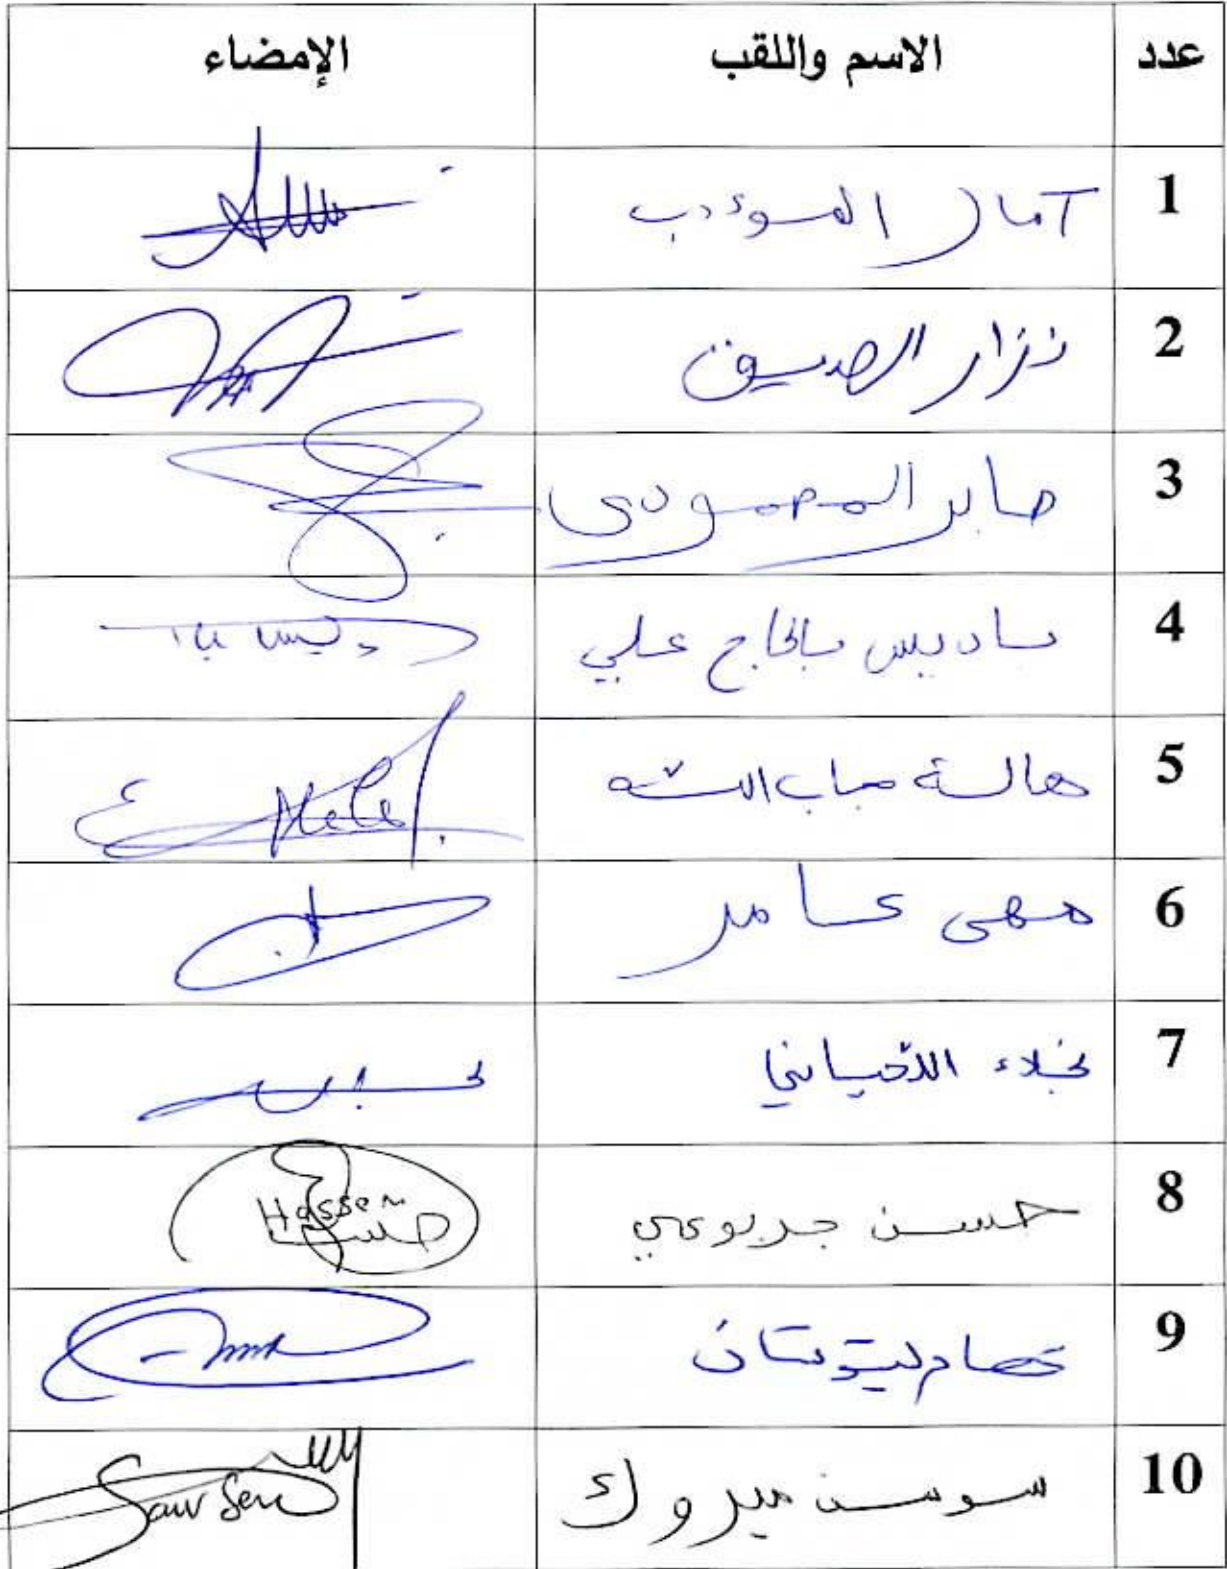 عدد الاسم واللقب الإمضاء
1 آمال المؤدب
2 نزار الصديق
3 صابر المحمودي
4 باديس بالحاج علي
5 هالة جاب الله
6 مهى عامر
7 نجلاء اللحياني
8 حسن جربوعي Hassen حسن
9
10 سوسن مبروك Sawsen